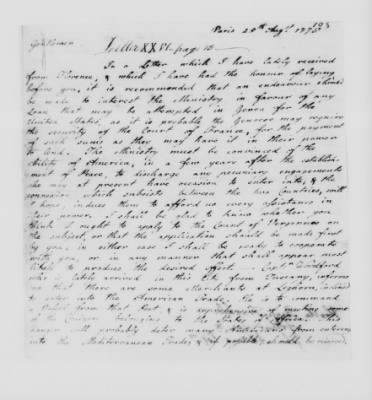 Paris 20th Augt. 1778
Gentlemen
Letter XXVI. page 18
In a Letter which I have lately received
from Florence, & which I have had the honour of laying
before you, it is recommended that an endeavour should
be made to interest the Ministry in favour of any
Loan that may be attempted in Genoa for the
United States, as it is probable the Genoese may require
the security of the Court of France, for the payment
of such sums as they may have it in their power
to lend. The Ministry must be convinced of the
Ability of America, in a few years after the establish-
ment of Peace, to discharge any pecuniary engagements
she may at present have occasion to enter into, & the
connexion which subsists between the two Countries, will
I hope, induce them to afford us every assistance in
their power. I shall be glad to know whether you
think I ought to apply to the Count de Vergennes on
the subject or that the application should be made first
by you, in either case I shall be ready to cooperate
with you, or in any manner that shall appear most
likely to produce the desired effect. Captn.
who is lately arrived in this City from Tuscany, informs
me that there are some Merchants at Leghorn,
to enter into the American Trade. He is to command
a Vessel from that Port & is apprehensive of meeting some
of the Cruizers belonging to the States of Africa. This
danger will probably deter many from entering
into the Mediterranean Trade, & if possible should be removed.